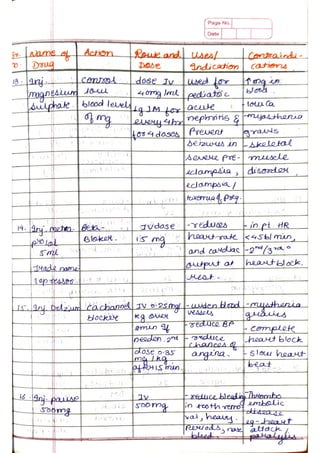 Page No.
Date
Sr. Name of Action Route and Uses/ Contraindi-
n. Drug Dose Indication cations
13. Inj. control dose Iv used for ↑ mg in
magnesium low 40mg/ml pediatric blood
sulphate blood levels Ig IM for acute - low Ca
of mg every 4hr nephritis & - myasthenia
for 4 doses Prevent gravis
seizures in - skeletal
severe pre- muscle
eclampsia, disorder
eclampsia/
toxemia of preg.
14. Inj. Beta- IV dose - reduces - in pt HR
prolol Bloker. 15 mg heart rate < 45b/min,
5ml and cardiac - 2nd/3rd°
Trade name output at heart block.
lopressor rest.
15. Inj. Delzium ca channel IV 0.25mg - widen blood - mysthenia
blockive kg over vessels gravies
2min If - reduce BP - complete
needen. 2nd - reduce heart block
dose 0.35 chances of - slow heart
mg/kg angina. beat
after 15 min.
16. Inj. pause IV - reduce bleeding Thrombo
500mg 500mg in tooth remo embolic
val, heavy disease
Periods, nose eg - heart
bleed. attack,
paralysis